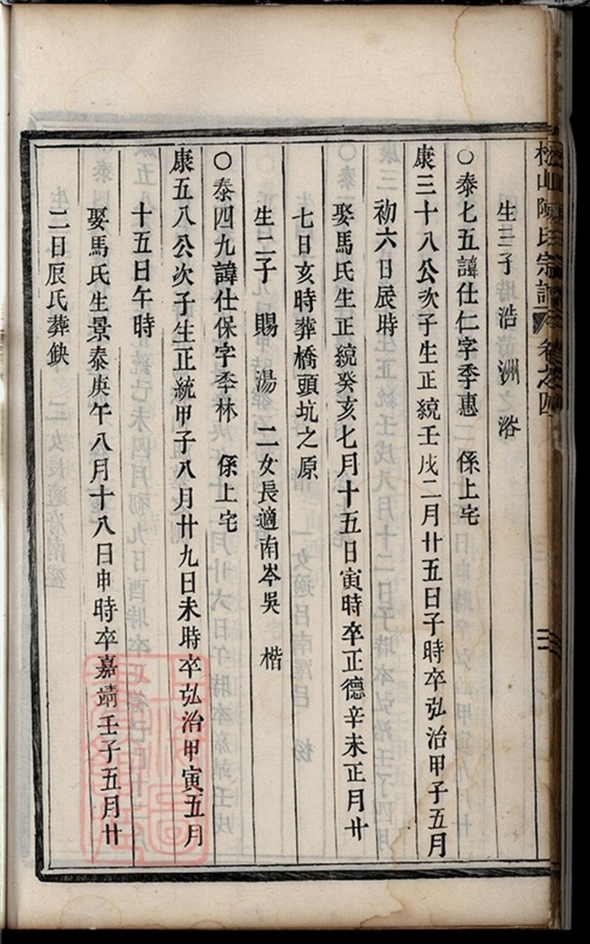 松山陳氏宗譜 卷之四 三
生三子 浩 洲 浴
○泰七五諱仕仁字季惠 係上宅
康三十八公次子生正統壬戌二月廿五日子時卒弘治甲子五月
初六日辰時
娶馬氏生正統癸亥七月十五日寅時卒正德辛未正月廿
七日亥時葬橋頭坑之原
生二子 賜 湯 二女長適南岑吳 楷
○泰四九諱仕保字季林 係上宅
康五八公次子生正統甲子八月廿九日未時卒弘治甲寅五月
十五日午時
娶馬氏生景泰庚午八月十八日申時卒嘉靖壬子五月廿
二日辰氏葬缺